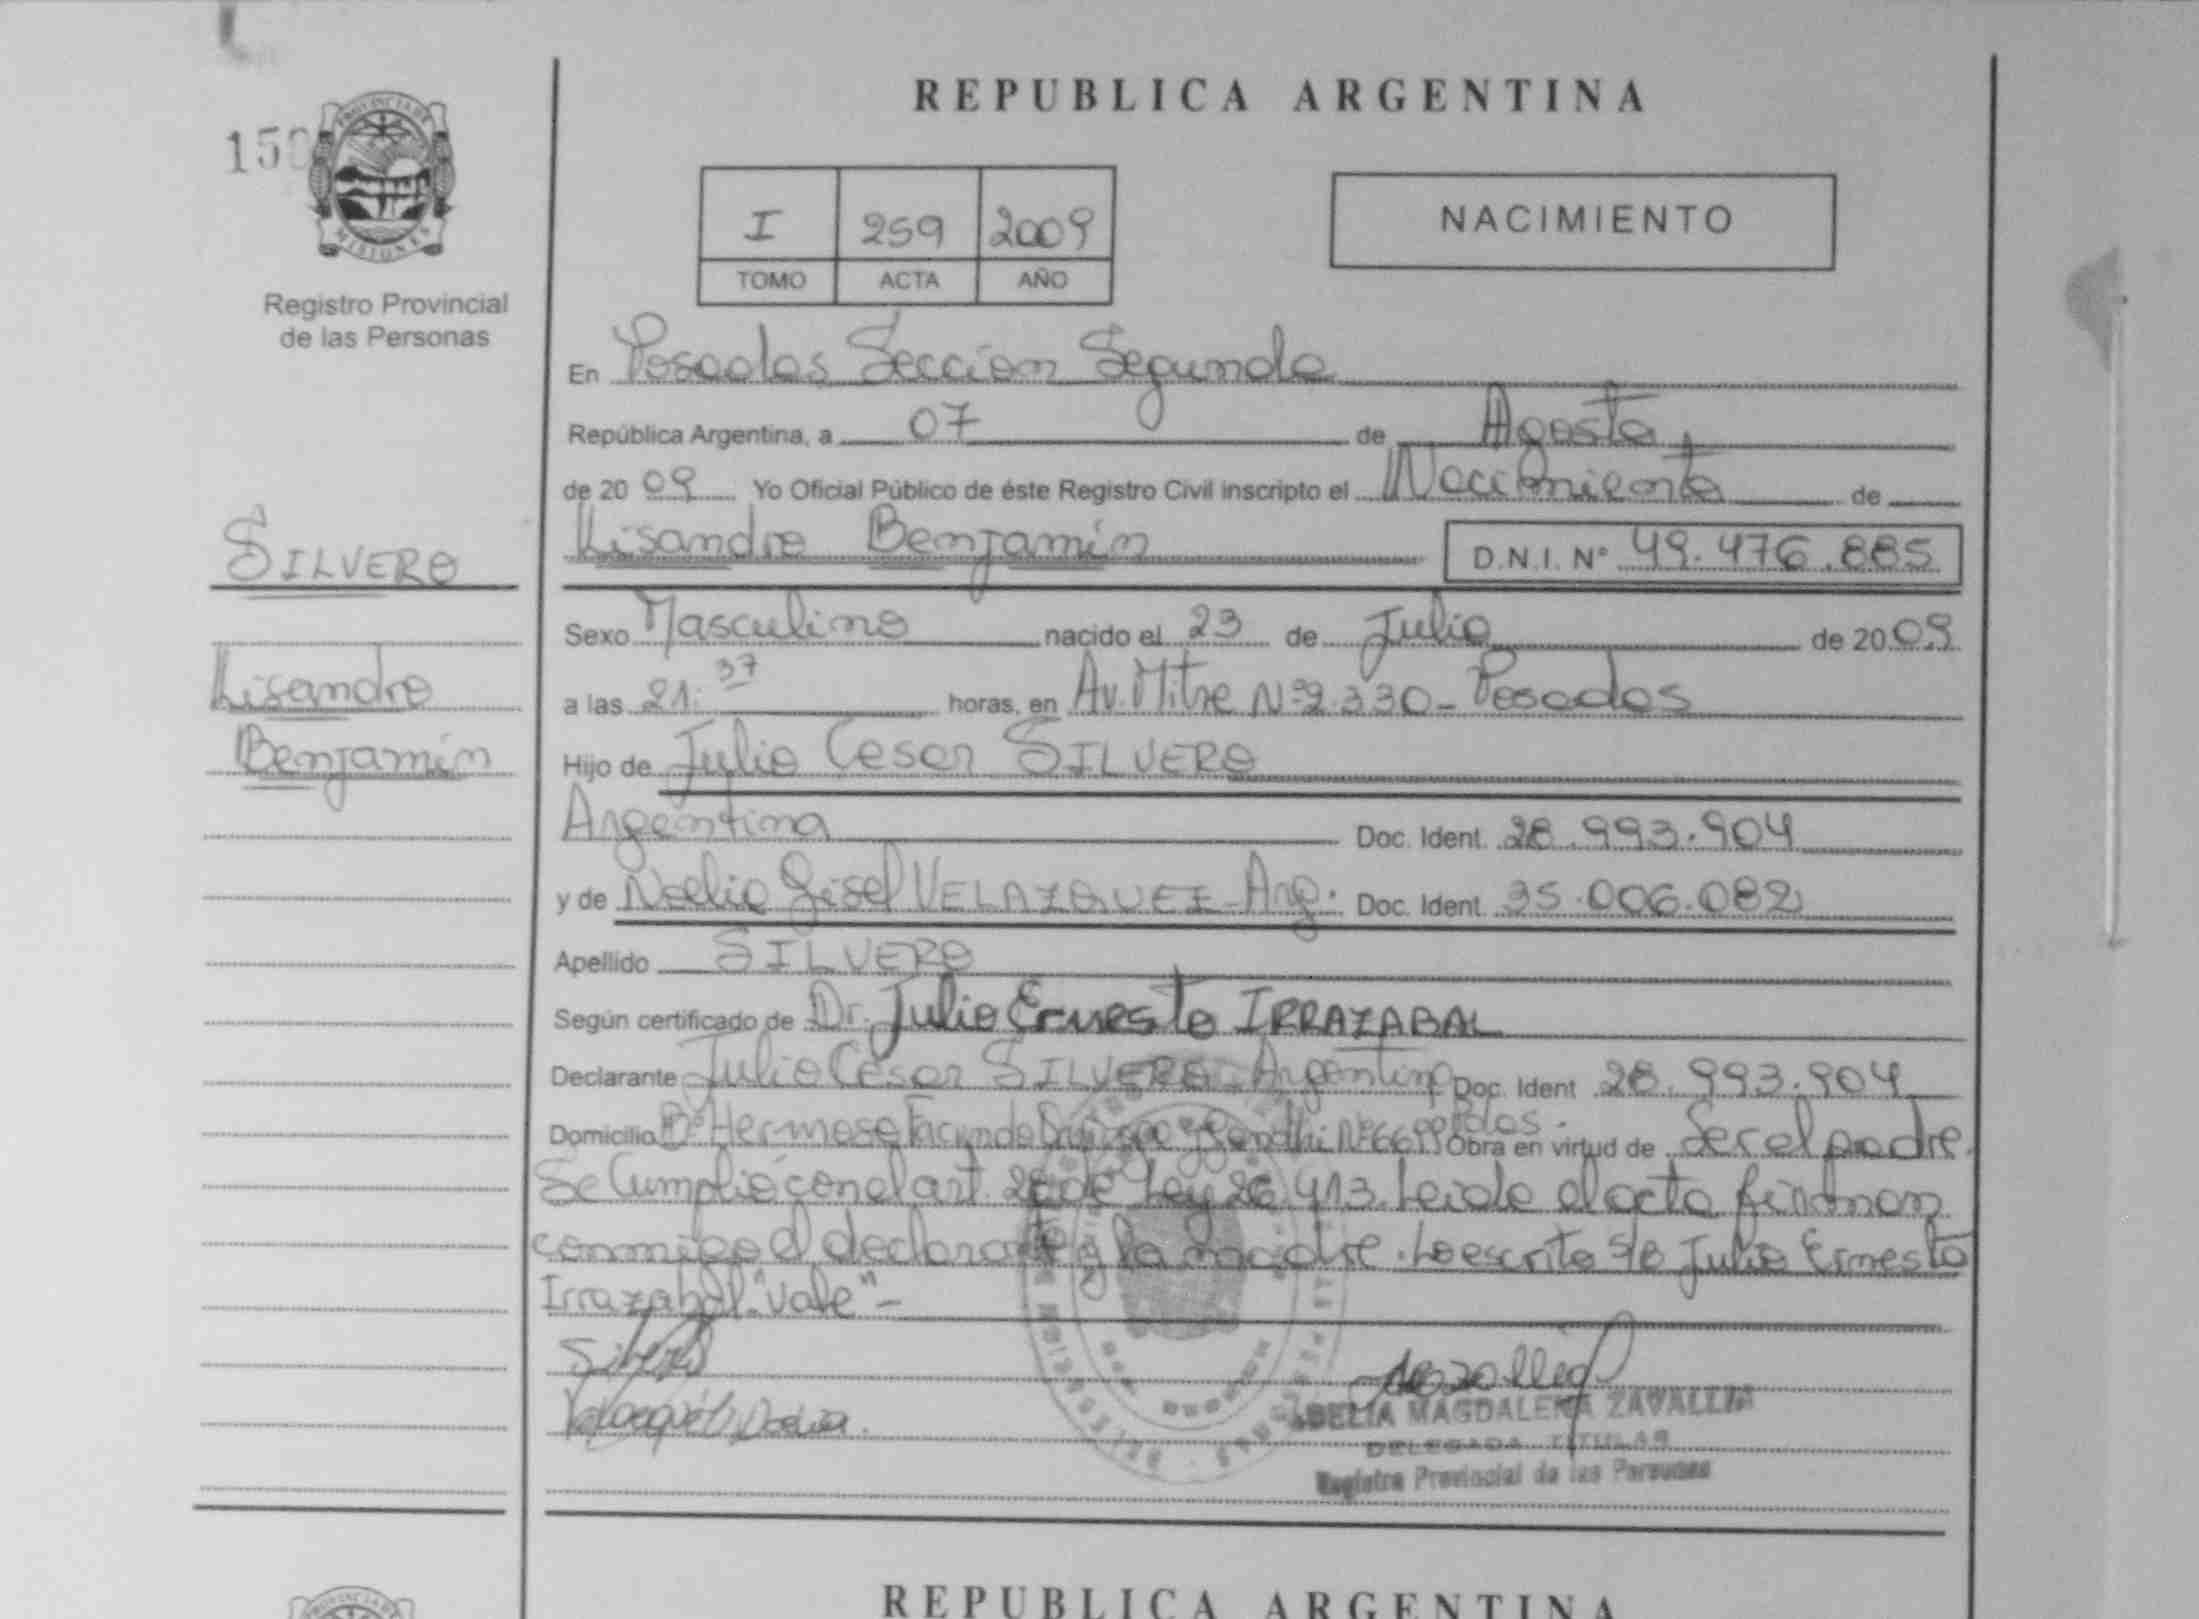 REPUBLICA ARGENTINA
150
PROVINCIA DE
MISIONES
Registro Provincial
de las Personas
I 259 2009
TOMO ACTA AÑO
NACIMIENTO
En Posadas Sección Segunda
República Argentina, a 07 de Agosto
de 2009 Yo Oficial Público de éste Registro Civil inscripto el Nacimiento de
Lisandro Benjamín D.N.I. Nº 49.476.885
SILVERO
Lisandro
Benjamín
Sexo Masculino nacido el 23 de Julio de 2009
a las 21:37 horas, en Av. Mitre Nº 2.330 - Posadas
Hijo de Julio Cesar SILVERO
Argentina Doc. Ident. 28.993.904
y de Noelia Gisel VELAZQUEZ - Arg. Doc. Ident. 35.006.082
Apellido SILVERO
Según certificado de Dr. Julio Ernesto IRRAZABAL
Declarante Julio Cesar SILVERO - Argentino Doc. Ident 28.993.904
Domicilio Bº Hermoso Facundo Quiroga y Gandhi Nº 6699 Pdas. Obra en virtud de Ser el padre.
Se Cumplió con el art. 28 de Ley 26.413. Leida el acta firman
conmigo el declarante y la madre. Lo escrito s/b Julio Ernesto
Irrazabal "Vale" -
Silvero
Velazquez Noelia
ADELIA MAGDALENA ZAVALLIA
DELEGADA TITULAR
Registro Provincial de las Personas
PROVINCIA DE
REPUBLICA ARGENTINA